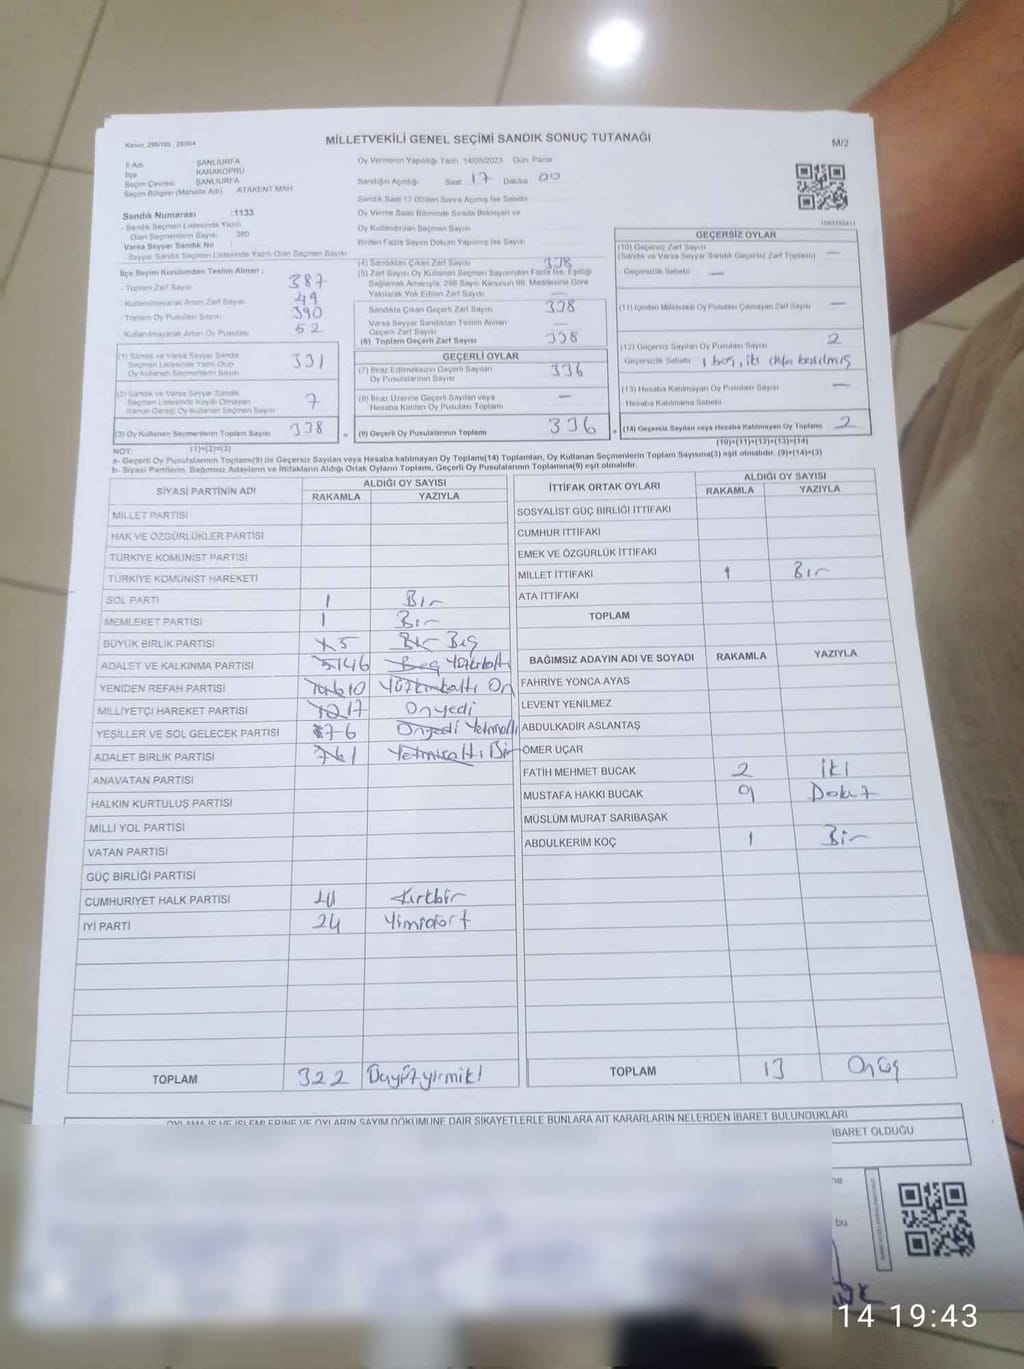 Kanun, 298/105 , 2839/4
MİLLETVEKİLİ GENEL SEÇİMİ SANDIK SONUÇ TUTANAĞI
M/2
İl Adı ŞANLIURFA
İlçe KARAKÖPRÜ
Seçim Çevresi ŞANLIURFA
Seçim Bölgesi (Mahalle Adı) ATAKENT MAH
Sandık Numarası :1133
- Sandık Seçmen Listesinde Yazılı
Olan Seçmenlerin Sayısı 380
Varsa Seyyar Sandık No
- Seyyar Sandık Seçmen Listesinde Yazılı Olan Seçmen Sayısı
İlçe Seçim Kurulundan Teslim Alınan :
- Toplam Zarf Sayısı 387
- Kullanılmayarak Artan Zarf Sayısı 49
- Toplam Oy Pusulası Sayısı 390
- Kullanılmayarak Artan Oy Pusulası 52
(1) Sandık ve Varsa Seyyar Sandık
Seçmen Listesinde Yazılı Olup
Oy Kullanan Seçmenlerin Sayısı 331
(2) Sandık ve Varsa Seyyar Sandık
Seçmen Listesinde Kayıtlı Olmayan
Kanun Gereği Oy Kullanan Seçmen Sayısı 7
(3) Oy Kullanan Seçmenlerin Toplam Sayısı 338
(1)+(2)=(3)
Oy Vermenin Yapıldığı Tarih 14/05/2023 Gün Pazar
Sandığın Açıldığı Saat 17 Dakika 00
Sandık Saat 17.00'den Sonra Açılmış İse Sebebi
Oy Verme Saati Bitiminde Sırada Bekleyen ve
Oy Kullandırılan Seçmen Sayısı
Birden Fazla Sayım Döküm Yapılmış İse Sayısı
(4) Sandıktan Çıkan Zarf Sayısı 338
(5) Zarf Sayısı Oy Kullanan Seçmen Sayısından Fazla İse, Eşitliği
Sağlamak Amacıyla, 298 Sayılı Kanunun 98. Maddesine Göre
Yakılarak Yok Edilen Zarf Sayısı —
Sandıkta Çıkan Geçerli Zarf Sayısı 338
Varsa Seyyar Sandıktan Teslim Alınan
Geçerli Zarf Sayısı —
(6) Toplam Geçerli Zarf Sayısı 338
GEÇERLİ OYLAR
(7) İtiraz Edilmeksizin Geçerli Sayılan
Oy Pusulalarının Sayısı 336
(8) İtiraz Üzerine Geçerli Sayılan veya
Hesaba Katılan Oy Pusulası Toplamı —
(9) Geçerli Oy Pusulalarının Toplamı 336
GEÇERSİZ OYLAR
(10) Geçersiz Zarf Sayısı
(Sandık ve Varsa Seyyar Sandık Geçersiz Zarf Toplamı) —
- Geçersizlik Sebebi —
(11) İçinden Milletvekili Oy Pusulası Çıkmayan Zarf Sayısı —
(12) Geçersiz Sayılan Oy Pusulası Sayısı 2
Geçersizlik Sebebi 1 boş, iki defa basılmış
(13) Hesaba Katılmayan Oy Pusulası Sayısı —
- Hesaba Katılmama Sebebi
(14) Geçersiz Sayılan veya Hesaba Katılmayan Oy Toplamı 2
(10)+(11)+(12)+(13)=(14)
NOT:
a- Geçerli Oy Pusulalarının Toplamı(9) ile Geçersiz Sayılan veya Hesaba katılmayan Oy Toplamı(14) Toplamları, Oy Kullanan Seçmenlerin Toplam Sayısına(3) eşit olmalıdır. (9)+(14)=(3)
b- Siyasi Partilerin, Bağımsız Adayların ve İttifakların Aldığı Ortak Oyların Toplamı, Geçerli Oy Pusulalarının Toplamına(9) eşit olmalıdır.
SİYASİ PARTİNİN ADI ALDIĞI OY SAYISI
RAKAMLA YAZIYLA
MİLLET PARTİSİ
HAK VE ÖZGÜRLÜKLER PARTİSİ
TÜRKİYE KOMÜNİST PARTİSİ
TÜRKİYE KOMÜNİST HAREKETİ
SOL PARTİ 1 Bir
MEMLEKET PARTİSİ 1 Bir
BÜYÜK BİRLİK PARTİSİ 5 Bir Beş
ADALET VE KALKINMA PARTİSİ 5 146 Beş Yüzkırkaltı
YENİDEN REFAH PARTİSİ 146 10 Yüzkırkaltı On
MİLLİYETÇİ HAREKET PARTİSİ 17 Onyedi
YEŞİLLER VE SOL GELECEK PARTİSİ 76 Onyedi Yetmişaltı
ADALET BİRLİK PARTİSİ 76 1 Yetmişaltı Bir
ANAVATAN PARTİSİ
HALKIN KURTULUŞ PARTİSİ
MİLLİ YOL PARTİSİ
VATAN PARTİSİ
GÜÇ BİRLİĞİ PARTİSİ
CUMHURİYET HALK PARTİSİ 41 Kırkbir
İYİ PARTİ 24 Yimidört
TOPLAM 322 Üçyüzyirmiki
İTTİFAK ORTAK OYLARI ALDIĞI OY SAYISI
RAKAMLA YAZIYLA
SOSYALİST GÜÇ BİRLİĞİ İTTİFAKI
CUMHUR İTTİFAKI
EMEK VE ÖZGÜRLÜK İTTİFAKI
MİLLET İTTİFAKI 1 Bir
ATA İTTİFAKI
TOPLAM
BAĞIMSIZ ADAYIN ADI VE SOYADI RAKAMLA YAZIYLA
FAHRİYE YONCA AYAS
LEVENT YENİLMEZ
ABDULKADİR ASLANTAŞ
ÖMER UÇAR
FATİH MEHMET BUCAK 2 İki
MUSTAFA HAKKI BUCAK 9 Dokuz
MÜSLÜM MURAT SARIBAŞAK
ABDULKERİM KOÇ 1 Bir
TOPLAM 13 Onüç
OYLAMA İŞ VE İŞLEMLERİNE VE OYLARIN SAYIM DÖKÜMÜNE DAİR ŞİKAYETLERLE BUNLARA AİT KARARLARIN NELERDEN İBARET BULUNDUKLARI
İBARET OLDUĞU
ne
bu
14 19:43